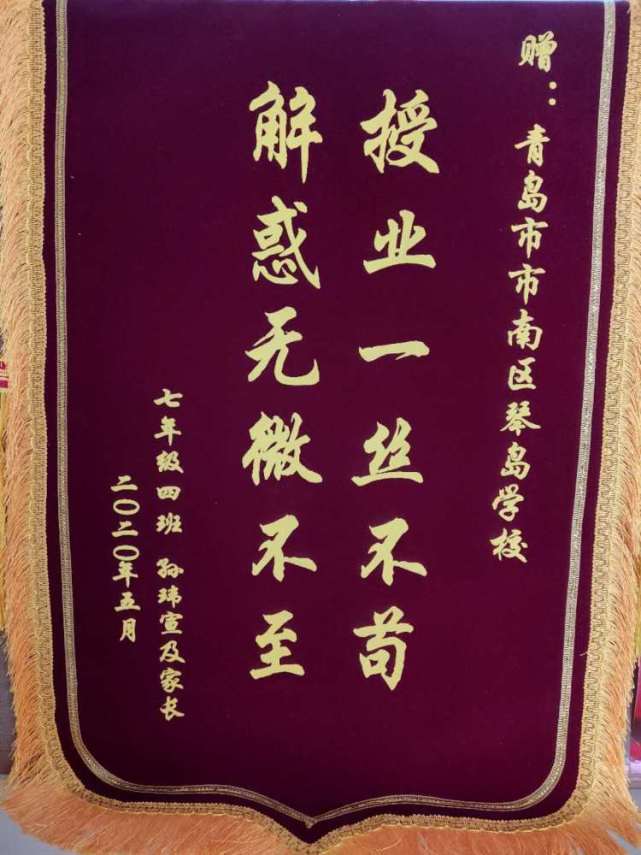 赠：青岛市市南区琴岛学校
授业一丝不苟
解惑无微不至
七年级四班 孙玮萱及家长
二〇二〇年五月